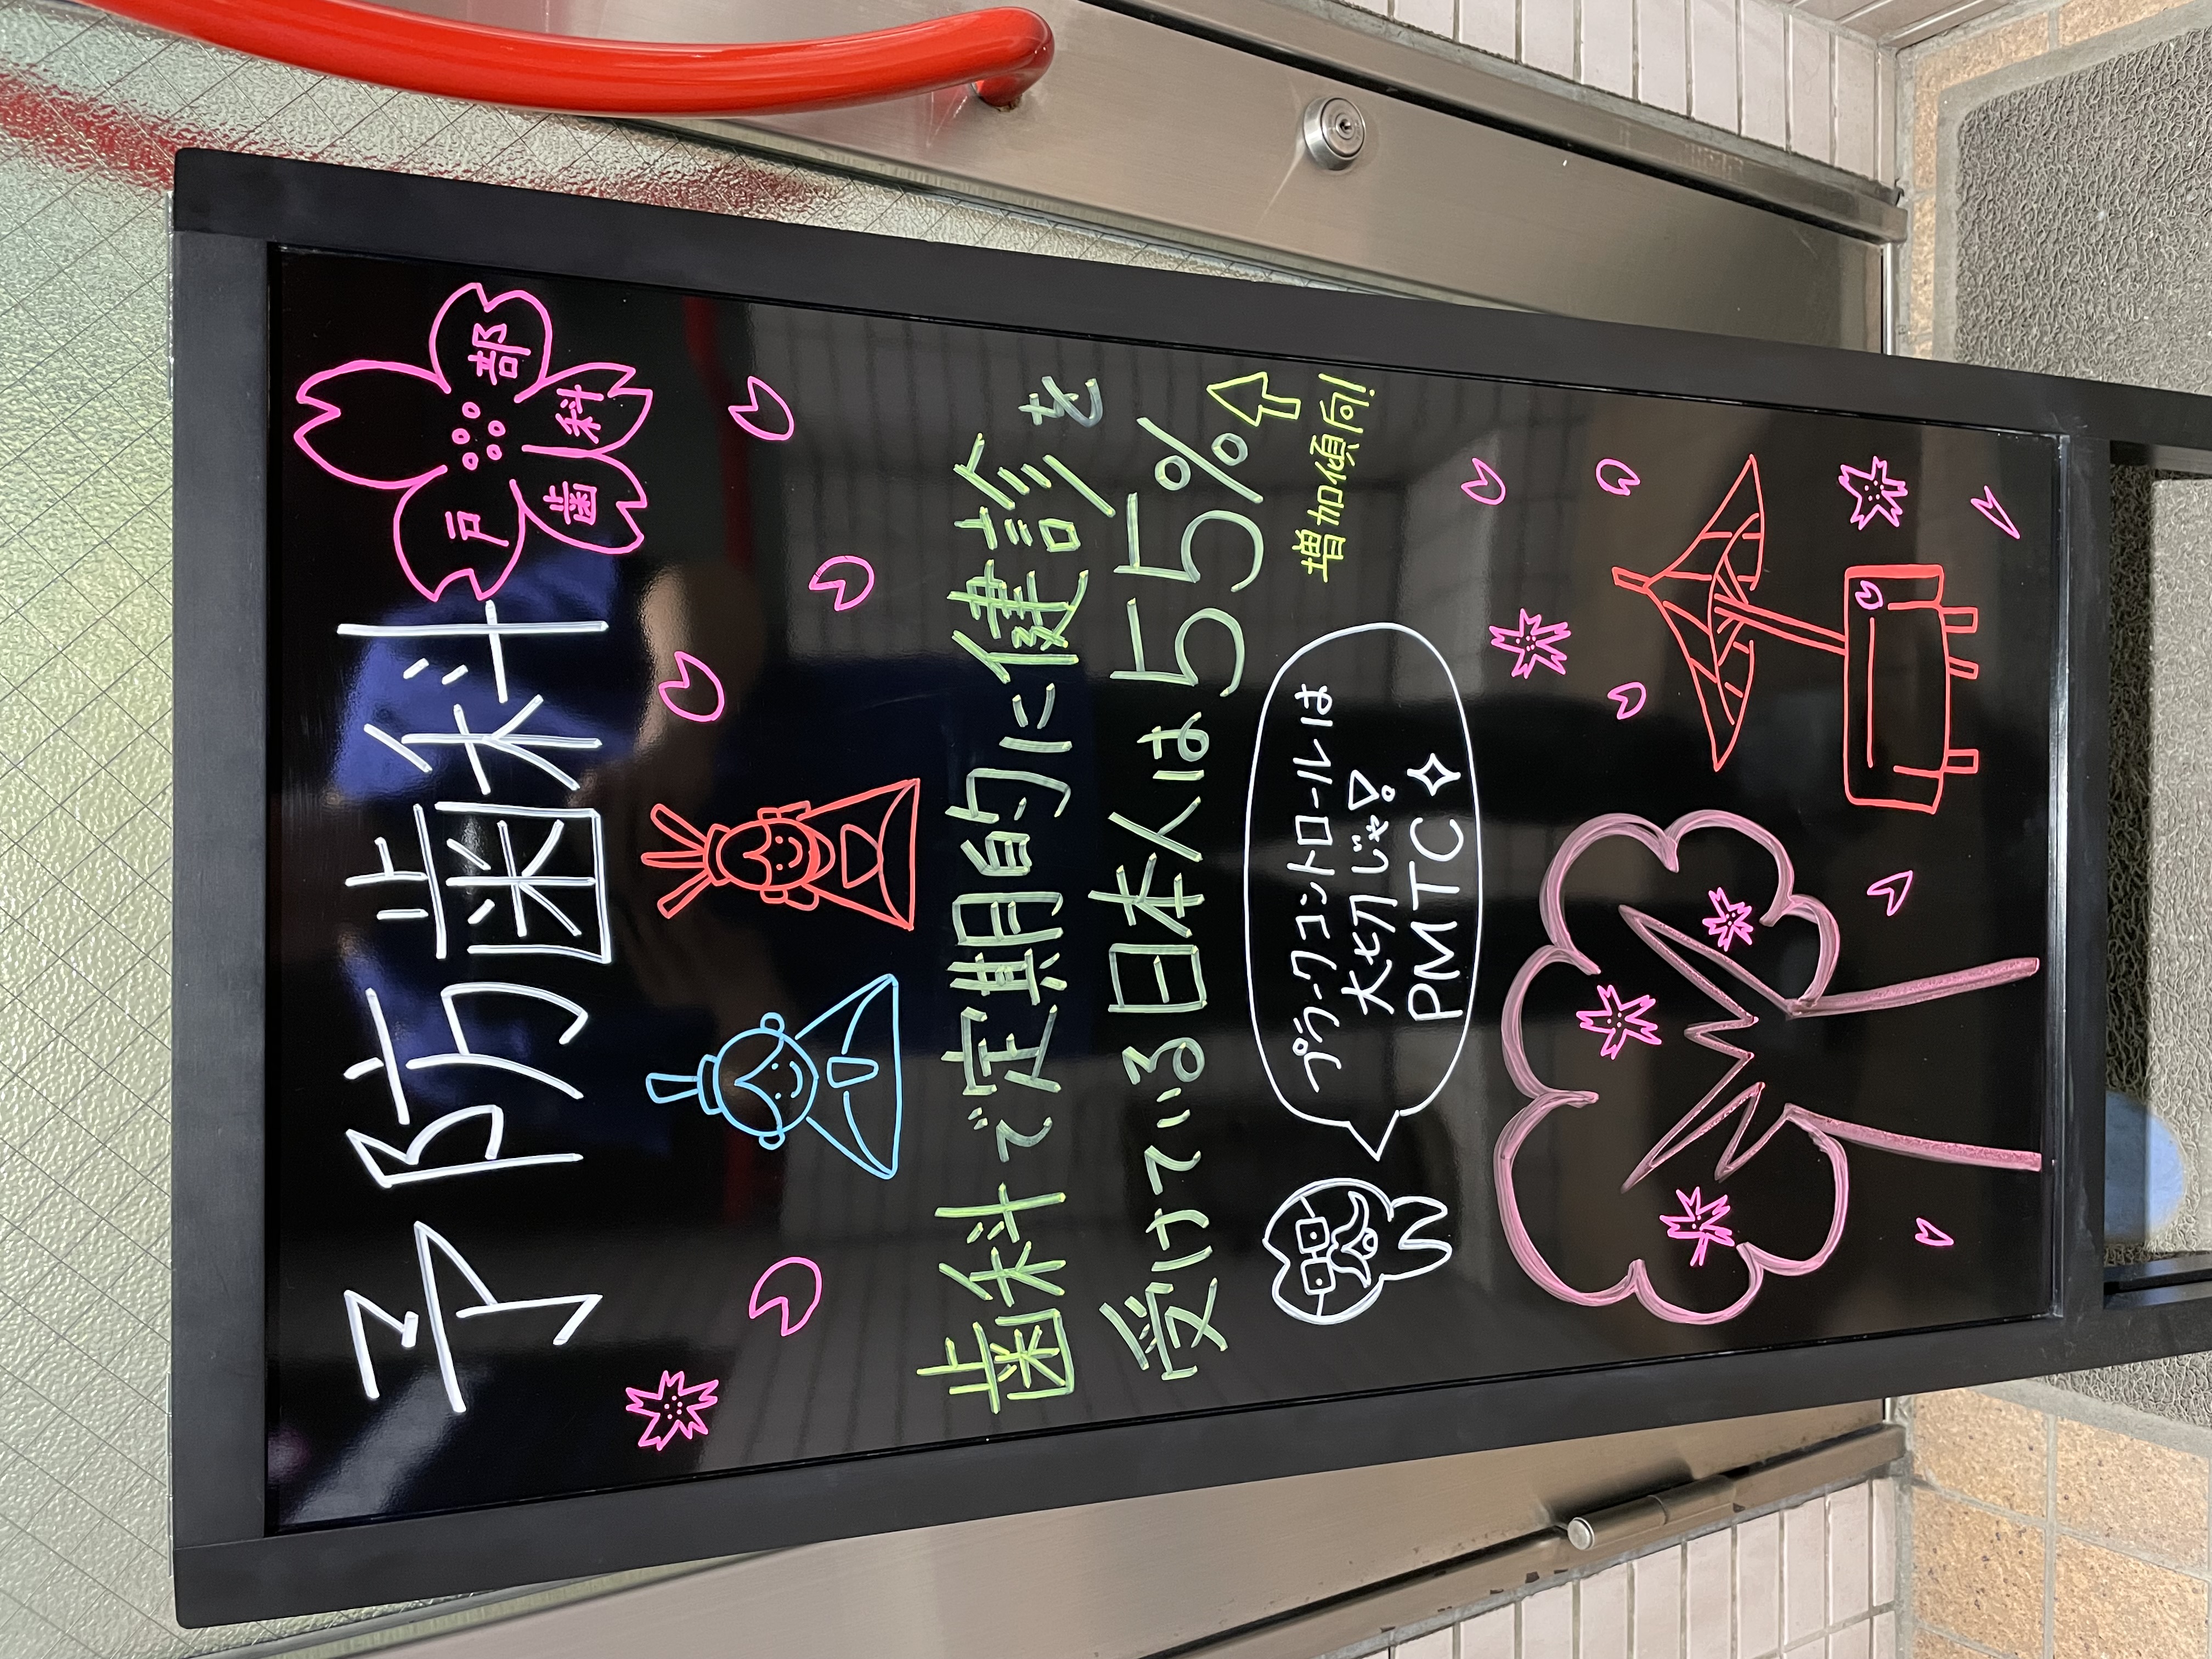 予防歯科
戸部
歯科
歯科で定期的に健診を
受けている日本人は55%
増加傾向!
プラークコントロールは
大切じゃ!
PMTC